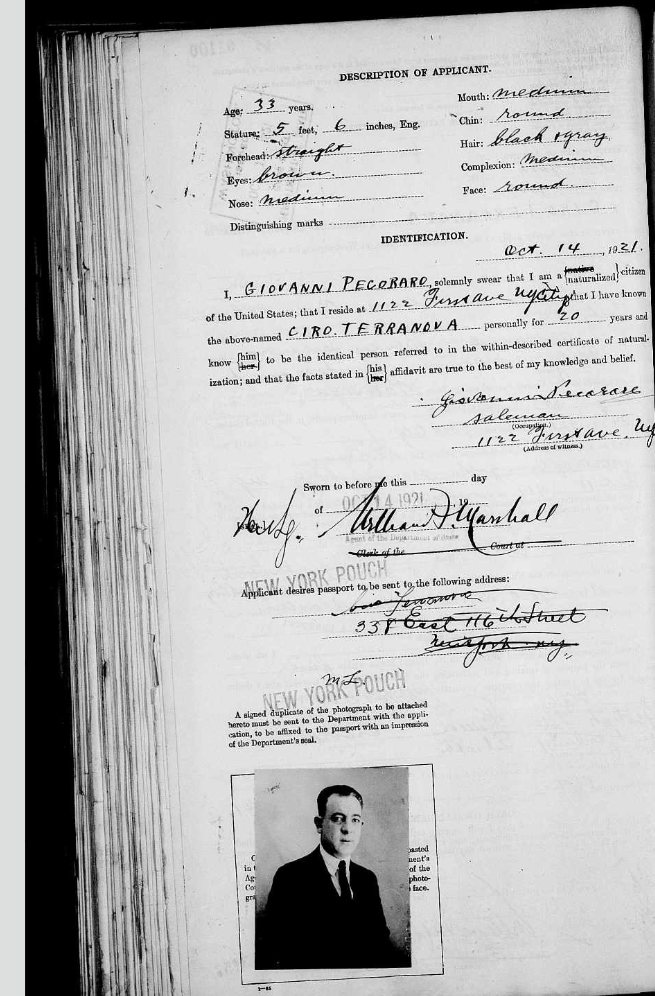 DESCRIPTION OF APPLICANT.
Age: 33 years.
Mouth: medium
Stature: 5 feet, 6 inches, Eng.
Chin: round
Forehead: straight
Hair: black & gray
Eyes: brown
Complexion: Medium
Nose: Medium
Face: round
Distinguishing marks
IDENTIFICATION.
Oct. 14, 1921.
I, GIOVANNI PECORARO, solemnly swear that I am a {native naturalized} citizen
of the United States; that I reside at 1122 First ave NYCity that I have known
the above-named CIRO TERRANOVA personally for 20 years and
know {him her} to be the identical person referred to in the within-described certificate of natural-
ization; and that the facts stated in {his her} affidavit are true to the best of my knowledge and belief.
Giovanni Pecoraro
salesman
(Occupation.)
1122 First ave. Ny
(Address of witness.)
Sworn to before me this day
of OCT 14 1921 19
William F. Marshall
Agent of the Department of State
Clerk of the Court at
NEW YORK POUCH
Applicant desires passport to be sent to the following address:
Ciro Terranova
338 East 116th Street
New York ny
NEW YORK POUCH
A signed duplicate of the photograph to be attached
hereto must be sent to the Department with the appli-
cation, to be affixed to the passport with an impression
of the Department's seal.
pasted
ment's
of the
photo-
face.